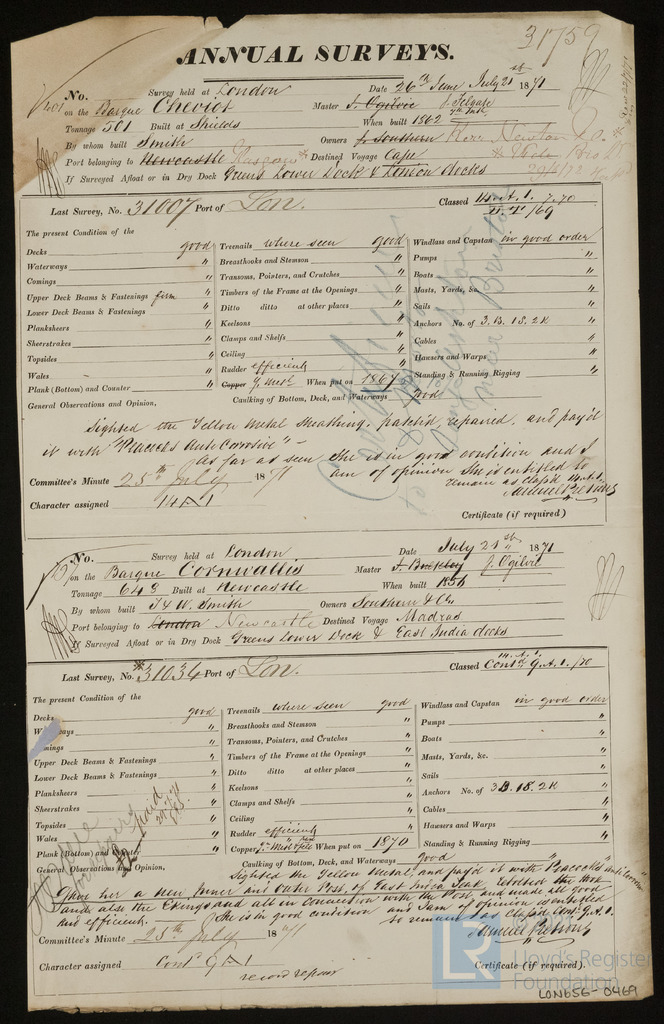 31759
ANNUAL SURVEYS.
No. Survey held at London Date 26th June July 21st 1871
on the Barque Cheviot Master J. Ogilvie
Tonnage 501 Built at Shields When built 1862 7th Mth
By whom built Smith Owners J. Southern Kerr Newton & Co.
Port belonging to Newcastle Glasgow Destined Voyage Cape
If Surveyed Afloat or in Dry Dock Greens Lower Dock & London docks
Last Survey, No. 31007 Port of Lon. Classed 14 A.1. 7.70
The present Condition of the
Decks good Treenails where seen good Windlass and Capstan in good order
Waterways " Breasthooks and Stemson " Pumps "
Comings " Transoms, Pointers, and Crutches " Boats "
Upper Deck Beams & Fastenings firm " Timbers of the Frame at the Openings " Masts, Yards, &c. "
Lower Deck Beams & Fastenings " Ditto ditto at other places " Sails "
Planksheers " Keelsons " Anchors No. of 3.B. 1S. 2K "
Sheerstrakes " Clamps and Shelfs " Cables "
Topsides " Ceiling " Hawsers and Warps "
Wales " Rudder efficient Standing & Running Rigging "
Plank (Bottom) and Counter " Copper Y. Metl. When put on 1867
General Observations and Opinion, Caulking of Bottom, Deck, and Waterways good
Sighted the Yellow Metal Sheathing, patch'd, repaired, and pay'd
it with "Peacocks Anti Corrosive"
As far as seen She is in good condition and I
am of opinion She is entitled to
remain as class'd 14.A.1.
Committee's Minute 25th July 1871
Character assigned 14 A1
Certificate (if required)
No. Survey held at London Date July 21st 1871
on the Barque Cornwallis Master J. Ogilvie
Tonnage 643 Built at Newcastle When built 1856
By whom built T & W. Smith Owners Southern & Co.
Port belonging to London Newcastle Destined Voyage Madras
If Surveyed Afloat or in Dry Dock Greens Lower Dock & East India docks
Last Survey, No. 31036 Port of Lon. Classed Contd. 9.A.1. /70
The present Condition of the
Decks good Treenails where seen good Windlass and Capstan in good order
Waterways " Breasthooks and Stemson " Pumps "
Comings " Transoms, Pointers, and Crutches " Boats "
Upper Deck Beams & Fastenings " Timbers of the Frame at the Openings " Masts, Yards, &c. "
Lower Deck Beams & Fastenings " Ditto ditto at other places " Sails "
Planksheers " Keelsons " Anchors No. of 3B. 1S. 2K "
Sheerstrakes " Clamps and Shelfs " Cables "
Topsides " Ceiling " Hawsers and Warps "
Wales " Rudder efficient Standing & Running Rigging "
Plank (Bottom) and Counter " Copper When put on 1870
General Observations and Opinion, Caulking of Bottom, Deck, and Waterways good
Sighted the Yellow Metal, and pay'd it with "Peacocks" anti corrosive
Gave her a new Inner and Outer Post, of East India Teak
and all in connection with the Post, and made all good
and efficient. She is in good condition and I am of opinion is entitled
to remain as class'd Cont. 9.A.1.
Committee's Minute 25th July 1871
Character assigned Contd 9 A1
record repair
Certificate (if required).
LR Lloyd's Register
Foundation
LON656-0469